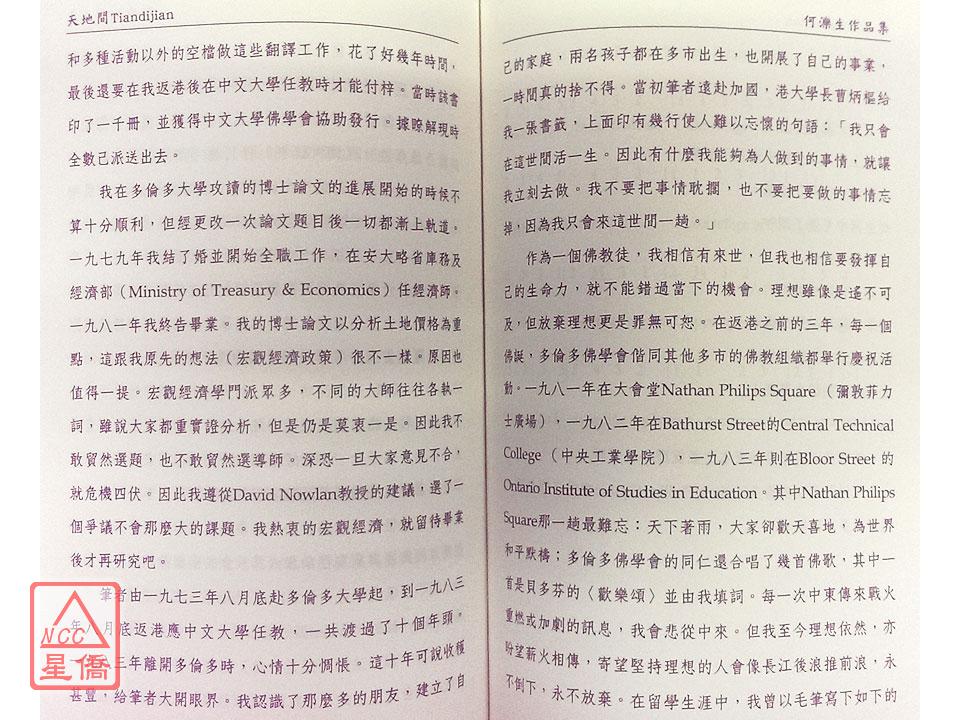 天地間Tiandijian
和多種活動以外的空檔做這些翻譯工作，花了好幾年時間，
最後還要在我返港後在中文大學任教時才能付梓。當時該書
印了一千冊，並獲得中文大學佛學會協助發行。據瞭解現時
全數己派送出去。
我在多倫多大學攻讀的博士論文的進展開始的時候不
算十分順利，但經更改一次論文題目後一切都漸上軌道。
一九七九年我結了婚並開始全職工作，在安大略省庫務及
經濟部（Ministry of Treasury & Economics）任經濟師。
一九八一年我終告畢業。我的博士論文以分析土地價格為重
點，這跟我原先的想法（宏觀經濟政策）很不一樣。原因也
值得一提。宏觀經濟學門派眾多，不同的大師往往各執一
詞，雖說大家都重實證分析，但是仍是莫衷一是。因此我不
敢貿然選題，也不敢貿然選導師。深恐一旦大家意見不合，
就危機四伏。因此我遵從David Nowlan教授的建議，選了一
個爭議不會那麼大的課題。我熱衷的宏觀經濟，就留待畢業
後才再研究吧。
筆者由一九七三年八月底赴多倫多大學起，到一九八三
年八月底返港應中文大學任教，一共渡過了十個年頭。
三年離開多倫多時，心情十分惆悵。這十年可說收穫
甚豐，給筆者大開眼界。我認識了那麼多的朋友，建立了自
何濼生作品集
己的家庭，兩名孩子都在多市出生，也開展了自己的事業，
一時間真的捨不得。當初筆者遠赴加國，港大學長曹炳樞給
我一張書籤，上面印有幾行使人難以忘懷的句語：「我只會
在這世間活一生。因此有什麼我能夠為人做到的事情，就讓
我立刻去做。我不要把事情耽擱，也不要把要做的事情忘
掉，因為我只會來這世間一趟。」
作為一個佛教徒，我相信有來世，但我也相信要發揮自
己的生命力，就不能錯過當下的機會。理想雖像是遙不可
及，但放棄理想更是罪無可恕。在返港之前的三年，每一個
佛誕，多倫多佛學會偕同其他多市的佛教組織都舉行慶祝活
動。一九八一年在大會堂Nathan Philips Square （彌敦菲力
士廣場），一九八二年在Bathurst Street的Central Technical
College（中央工業學院），一九八三年則在Bloor Street 的
Ontario Institute of Studies in Education。其中Nathan Philips
Square那一趟最難忘：天下著雨，大家卻歡天喜地，為世界
和平默檮；多倫多佛學會的同仁還合唱了幾首佛歌，其中一
首是貝多芬的〈歡樂頌〉並由我填詞。每一次中東傳來戰火
重燃或加劇的訊息，我會悲從中來。但我至今理想依然，亦
盼望薪火相傳，寄望堅持理想的人會像長江後浪推前浪，永
不倒下，永不放棄。在留學生涯中，我曾以毛筆寫下如下的
NCC
星僑